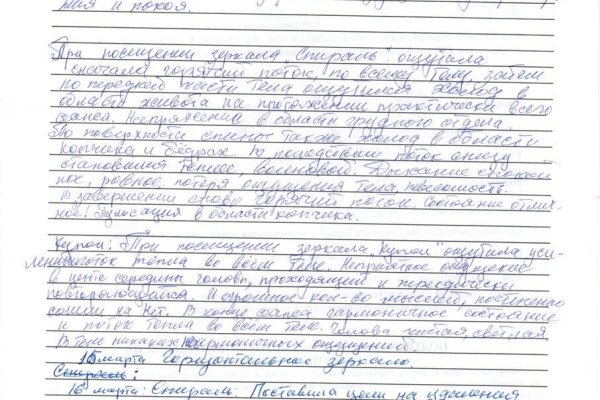 мия и покоя.
При посещении зеркала „Спираль" ощутила
сначала горячий поток, по всему телу, затем
по передней части тела ощущался холод в
области живота на протяжении практически всего
сеанса. Напряжение в области грудного отдела.
По поверхности спины также холод в области
копчика и бедрах. В последствии поток снизу
становился теплее, волновой. Дыхание спокой
ное, ровное, потеря ощущения тела, невесомость.
В завершении снова горячий поток. Состояние отлич-
ное. Пульсация в области копчика.
Купол: При посещении зеркала „Купол" ощутила уси-
ление поток тепла во всём теле. Неприятное ощущение
в центе середины головы, проходящий и переодически
повторяющийся. И огромное кол-во мыслей, постепенно
сошли на нет. В конце сеанса гармоничное состояние
и поток тепла во всём теле. Голова чистая, светлая,
В теле никаких негармоничных ощущений.
15 марта Горизонтальное зеркало.
Спираль:
16 марта: Спираль. Поставила цели на